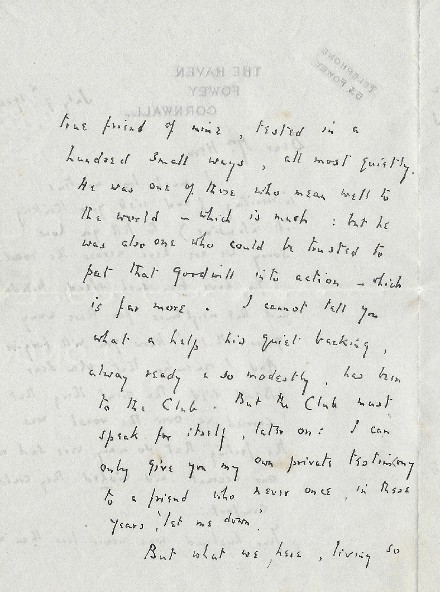 THE HAVEN
FOWEY
CORNWALL
TELEPHONE
FOWEY
true friend of mine, tested in a
hundred small ways, all most quietly.
He was one of those who mean well to
the world – which is much : but he
was also one who could be trusted to
put that goodwill into action – which
is far more. I cannot tell you
what a help his quiet backing,
always ready & so modestly, has been
to the Club. But the Club must
speak for itself, later on: I can
only give you my own private testimony
to a friend who never once, in these
years, 'let me down'.
But what we, here, living so